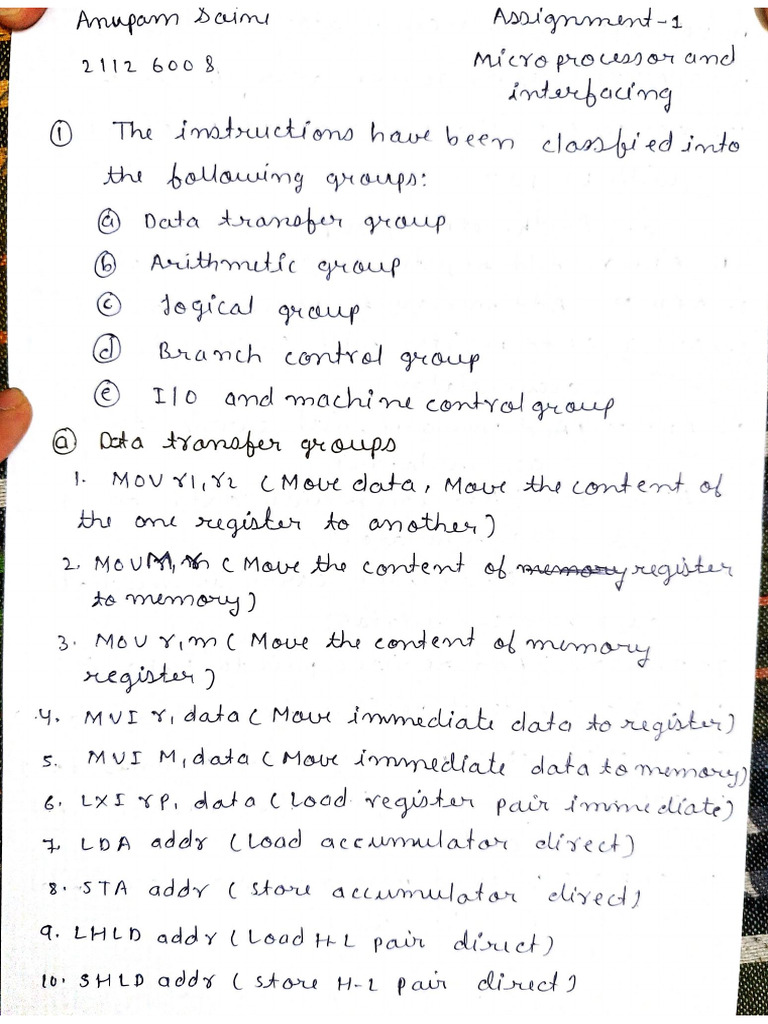 Anupam Saini
Assignment-1
21126008
Microprocessor and
interfacing
① The instructions have been classfied into
the following groups:
ⓐ Data transfer group
ⓑ Arithmetic group
ⓒ Logical group
ⓓ Branch control group
ⓔ I/O and machine control group
ⓐ Data transfer groups
1. MOV r1, r2 (Move data, Move the content of
the one register to another)
2. MOV M, r (Move the content of memory register
to memory)
3. MOV r, m (Move the content of memory
register)
4. MVI r, data (Move immediate data to register)
5. MVI M, data (Move immediate data to memory)
6. LXI rp, data (Load register pair immediate)
7. LDA addr (Load accumulator direct)
8. STA addr (store accumulator direct)
9. LHLD addr (Load H-L pair direct)
10. SHLD addr (store H-L pair direct)